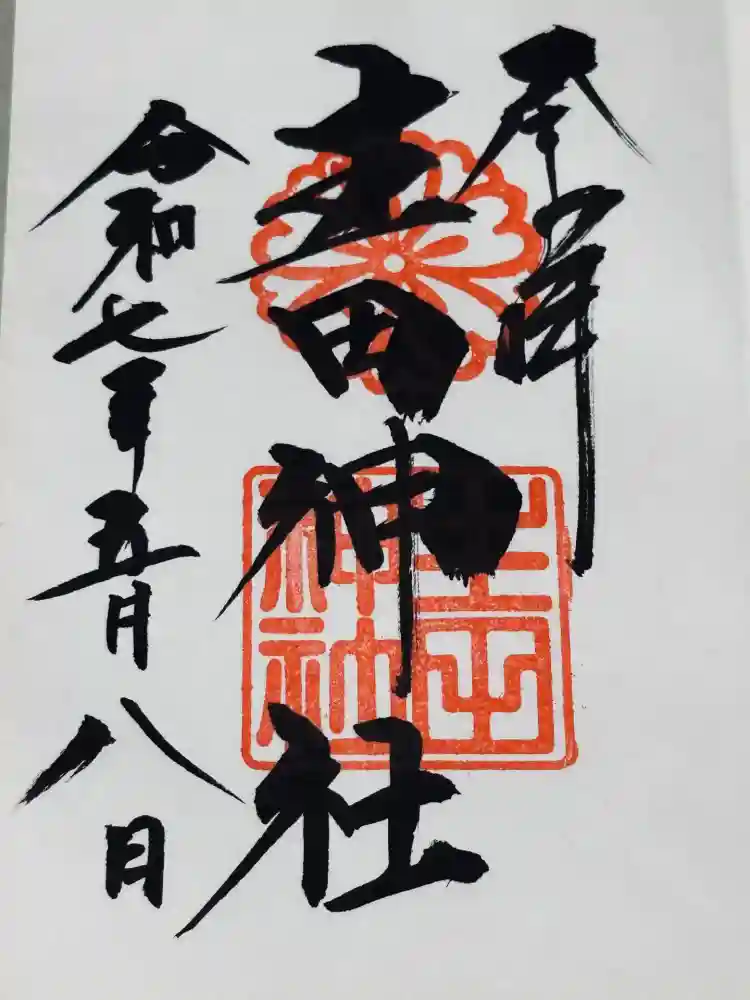 奉拝
田神社
令和七年五月八日
神社